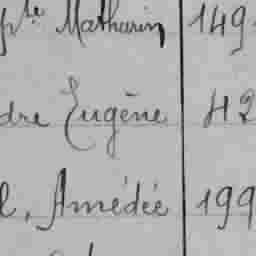 pte Mathurin 149
dre Eugène 42
l, Amédée 199